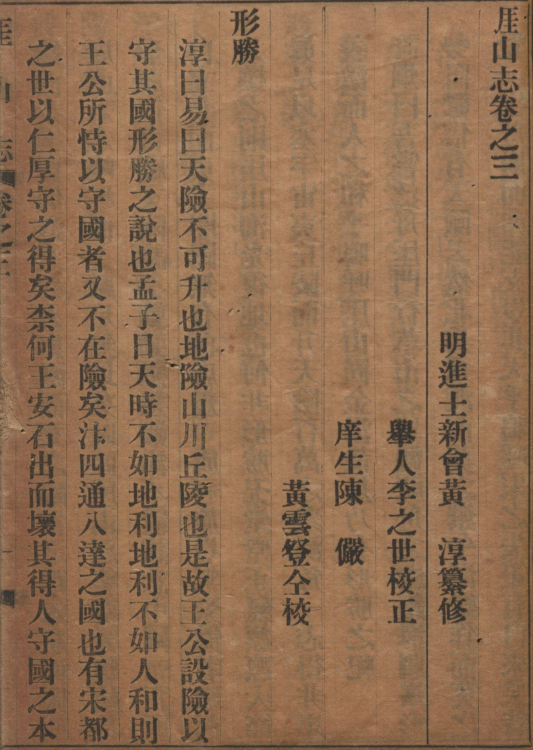 厓山志卷之三
明進士新會黃　淳纂修
舉人李之世校正
庠生陳　儼
黃雲登仝校
形勝
淳曰易曰天險不可升也地險山川丘陵也是故王公設險以
守其國形勝之說也孟子曰天時不如地利地利不如人和則
王公所恃以守國者又不在險矣汴四通八達之國也有宋都
之世以仁厚守之得矣柰何王安石出而壞其得人守國之本
厓山志　卷之三